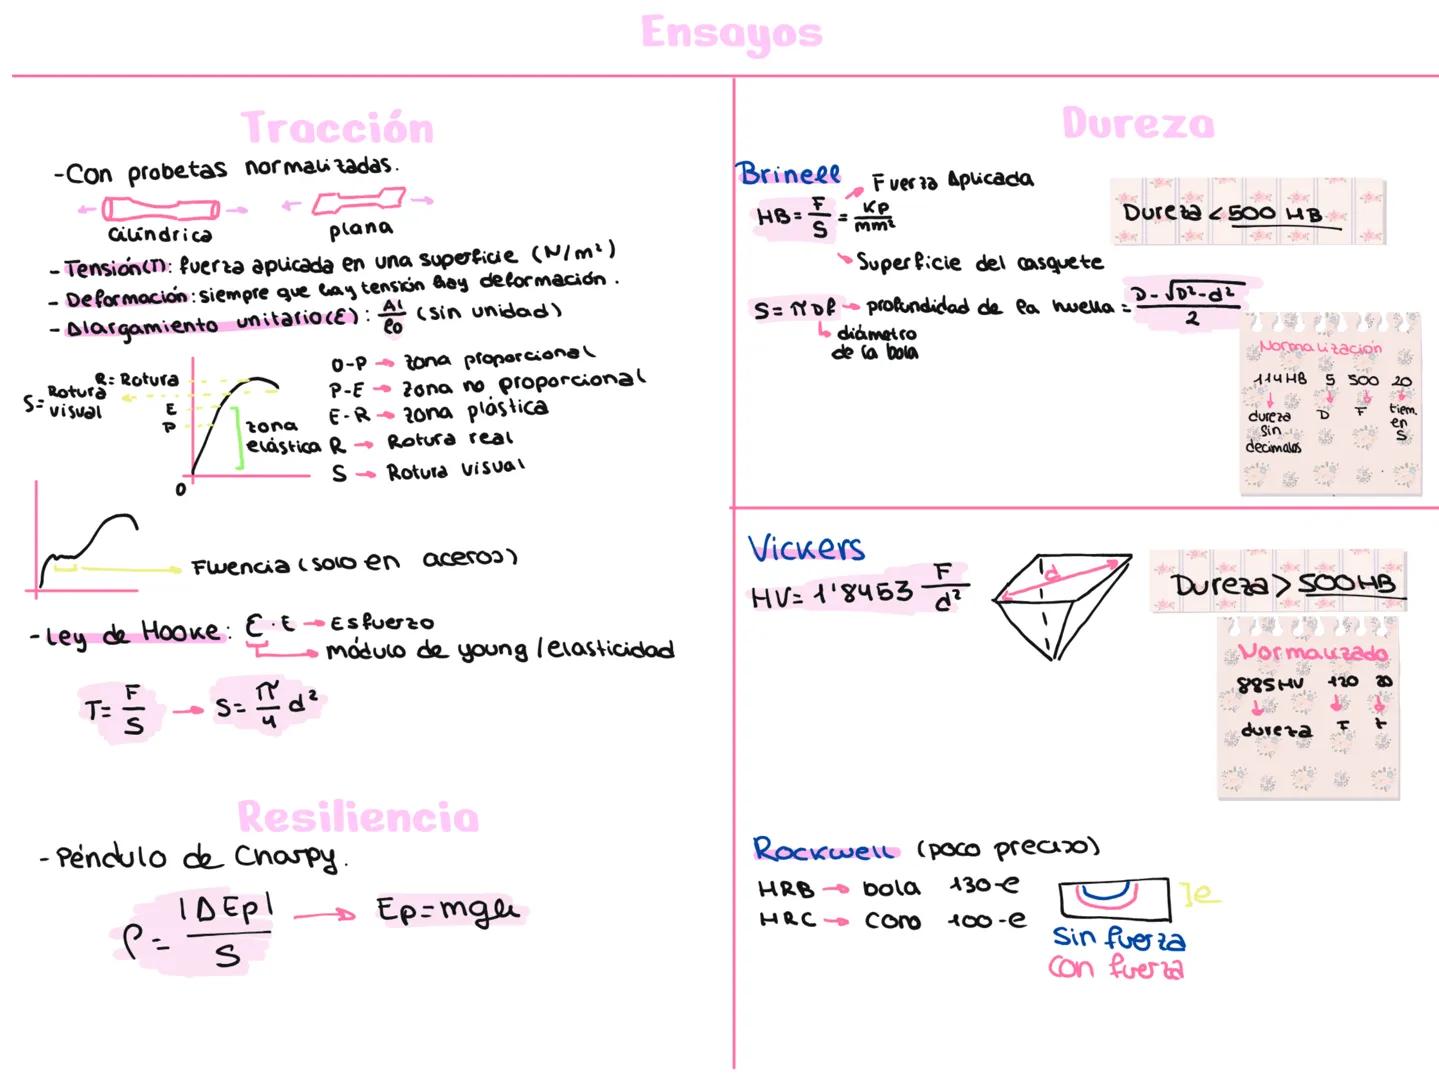 Ensayos
Tracción
-Con probetas normalizadas.
cilíndrica
plana
- Tensión(T): fuerza aplicada en una superficie (N/m²)
- Deformación: siempre que hay tensión hay deformación.
- Alargamiento unitario(ε): Δl/l₀ (sin unidad)
R= Rotura
S= Rotura visual
E
P
O
zona elástica
O-P → zona proporcional
P-E → zona no proporcional
E-R → zona plástica
R → Rotura real
S → Rotura visual
Fluencia (solo en aceros)
-Ley de Hooke: ε·E → Esfuerzo
módulo de young / elasticidad
T= F/S → S= π/4 d²
Resiliencia
- Péndulo de Charpy.
ρ= |ΔEp|/S → Ep=mgh
Dureza
Brinell
Fuerza Aplicada
HB= F/S = Kp/mm²
Superficie del casquete
Dureza < 500 HB
S= πDf → profundidad de la huella = D-√D²-d²/2
diámetro
de la bola
Normalización
114HB 5 500 20
dureza sin decimales
D
F
tiem. en S
Vickers
HV= 1'8453 F/d²
d
Dureza > 500HB
Normalizado
885HV 120 20
dureza F t
Rockwell (poco preciso)
HRB → bola 130-e
HRC → cono 100-e
e
Sin fuerza
con fuerza